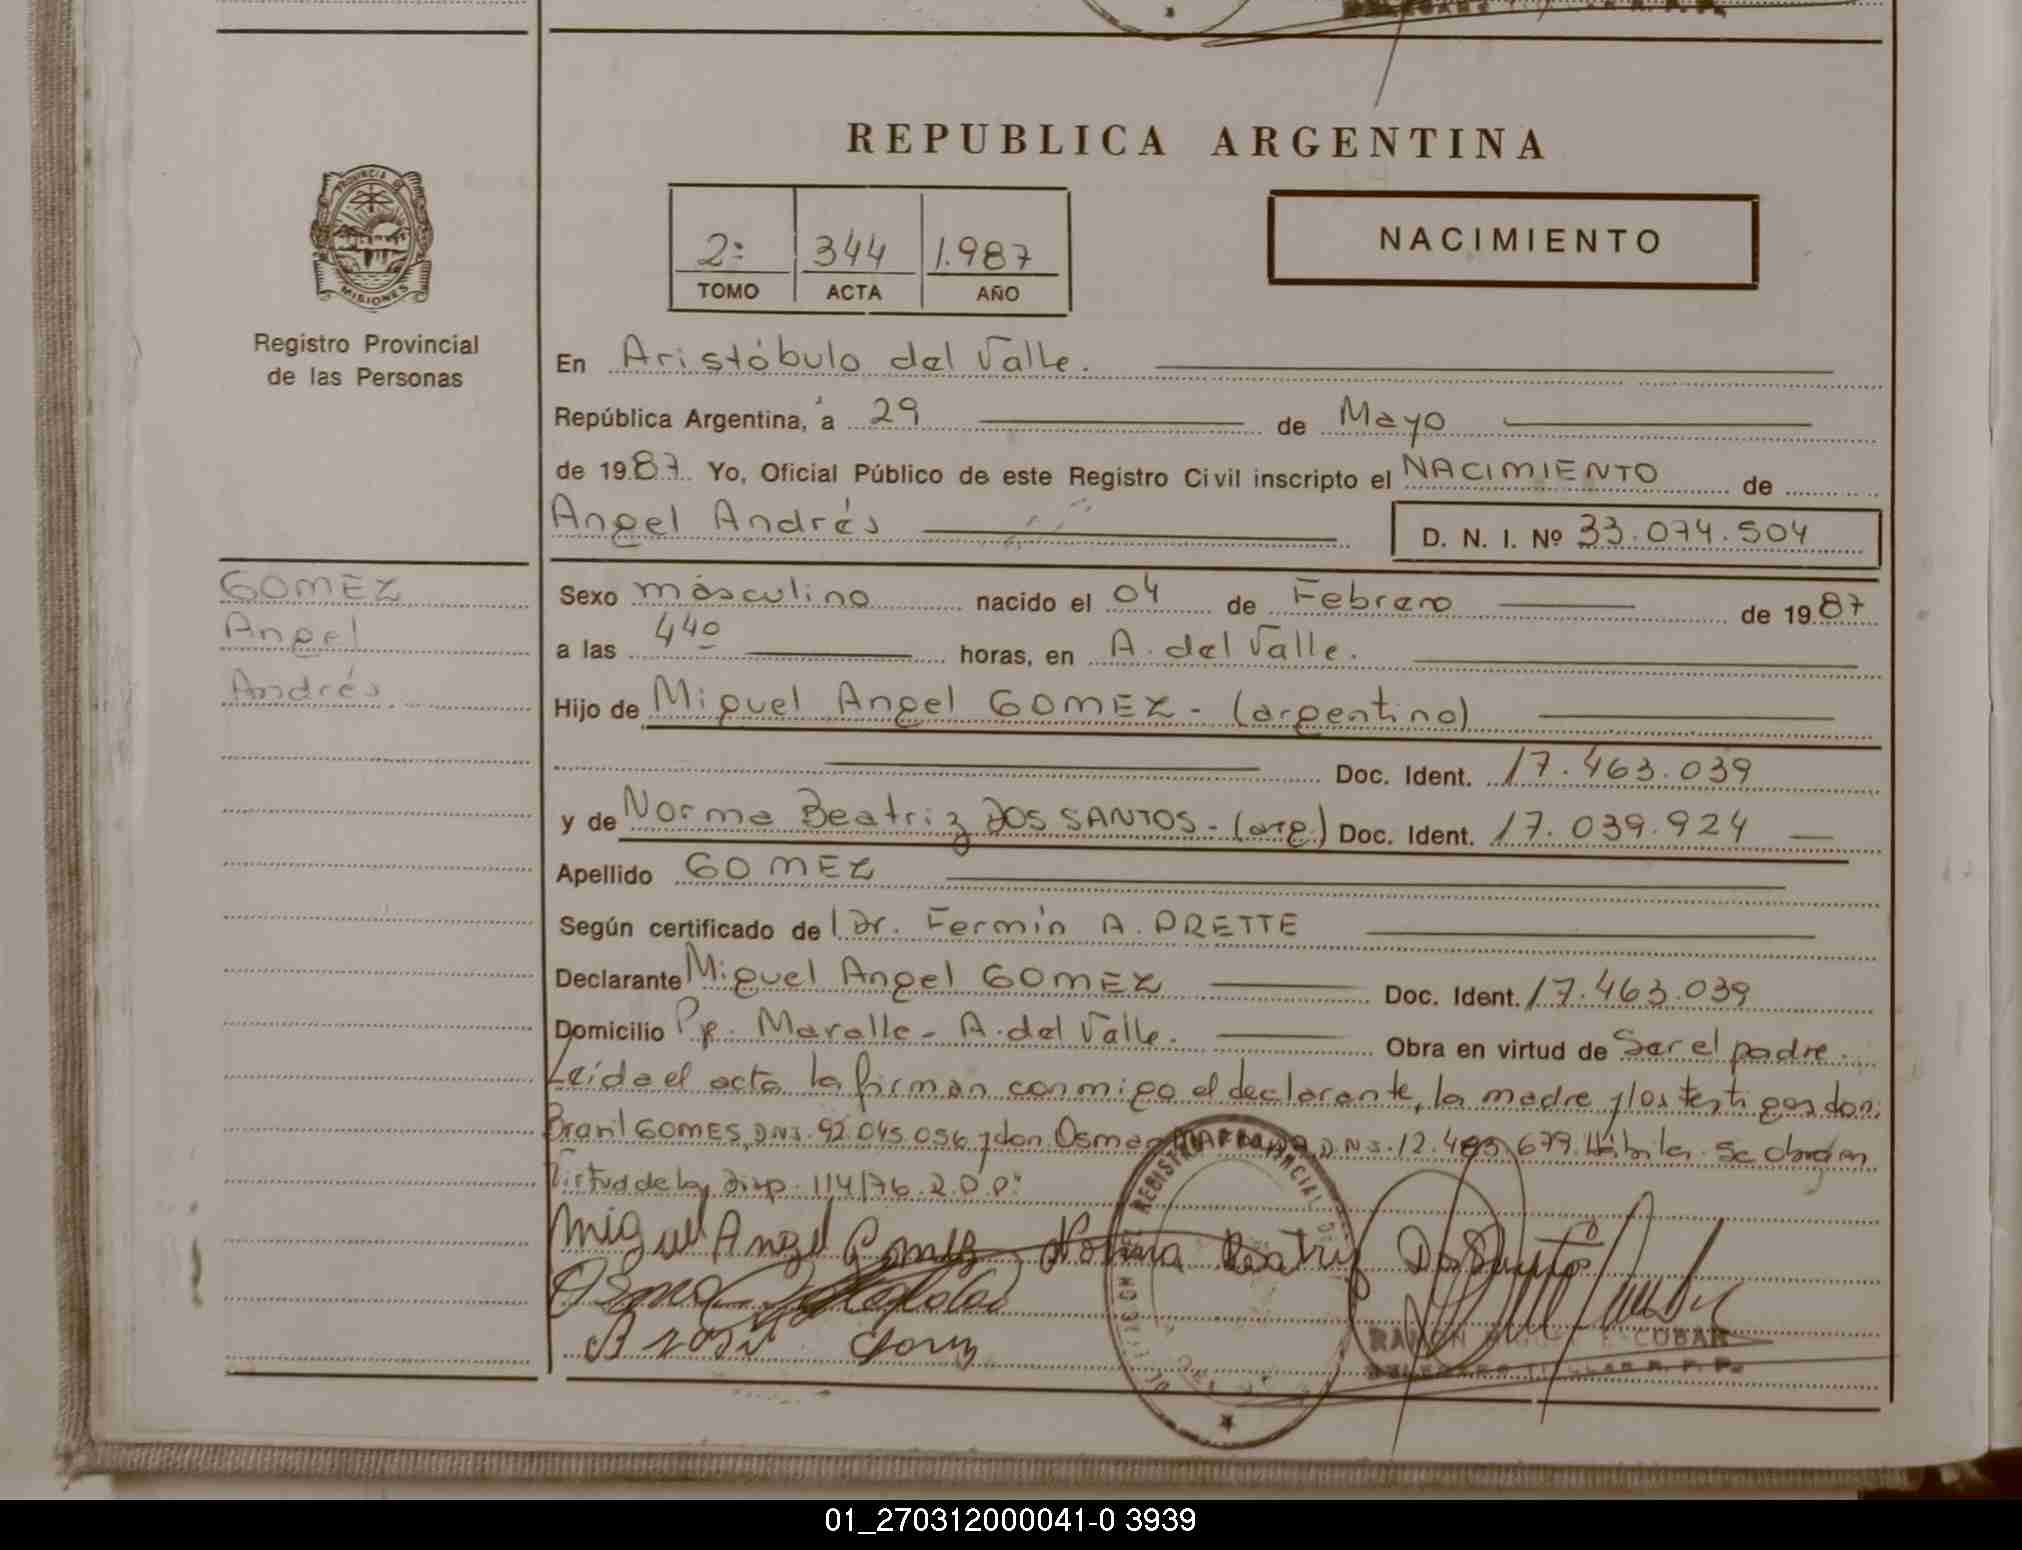 REPUBLICA ARGENTINA
PROVINCIA DE
MISIONES
Registro Provincial
de las Personas
2º 344 1.987
TOMO ACTA AÑO
NACIMIENTO
En Aristóbulo del Valle.
República Argentina, a 29 de Mayo
de 1987. Yo, Oficial Público de este Registro Civil inscripto el NACIMIENTO de
Angel Andrés
D. N. I. Nº 33.074.504
GOMEZ
Angel
Andrés
Sexo másculino nacido el 04 de Febrero de 1987
a las 440 horas, en A. del Valle.
Hijo de Miguel Angel GOMEZ - (argentino)
Doc. Ident. 17.463.039
y de Norma Beatriz DOS SANTOS - (arg.) Doc. Ident. 17.039.924
Apellido GOMEZ
Según certificado de Dr. Fermín A. PRETTE
Declarante Miguel Angel GOMEZ Doc. Ident. 17.463.039
Domicilio A. del Valle. Obra en virtud de Ser el padre.
Leída el acta la firman conmigo el declarante, la madre y los testigos don
Brasil GOMES, DNI. 92.045.056 y don DNI. 12. 679. Se obra en
Virtud de la Disp. 114/76
Miguel Angel Gomez Norma Beatriz Dos Santos
REGISTRO PROVINCIAL
RAMON
DELEGADO TITULAR R. P. P.
01_270312000041-0 3939